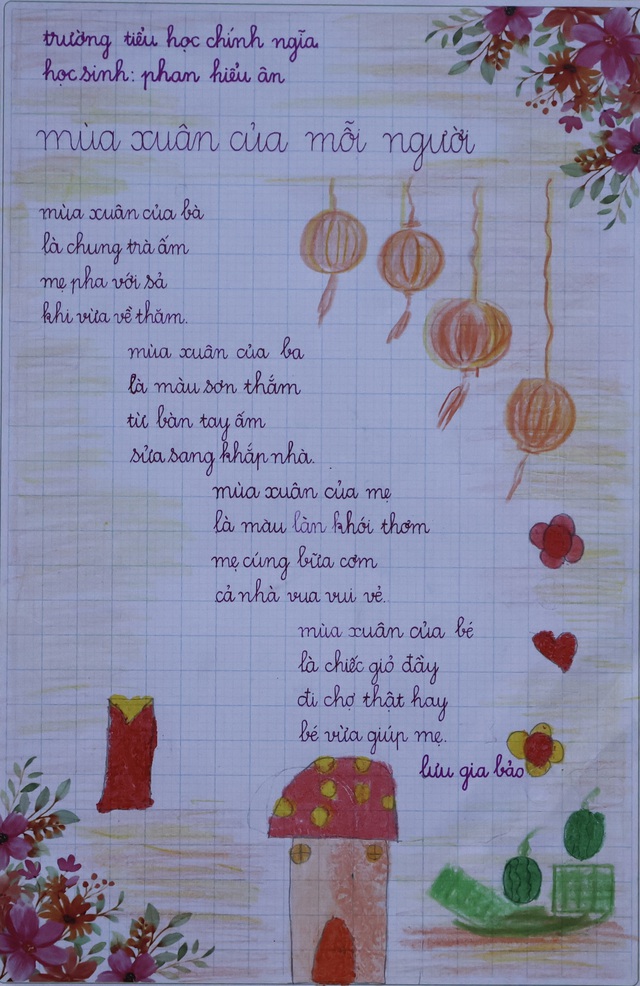 trường tiểu học chính ngĩa
học sinh: phan hiểu ân
mùa xuân của mỗi người
mùa xuân của bà
là chung trà ấm
mẹ pha với sả
khi vừa về thăm.
mùa xuân của ba
là màu sơn thắm
từ bàn tay ấm
sửa sang khắp nhà.
mùa xuân của mẹ
là màu làn khói thơm
mẹ cúng bữa cơm
cả nhà vua vui vẻ.
mùa xuân của bé
là chiếc giỏ đầy
đi chợ thật hay
bé vừa giúp mẹ.
lưu gia bảo